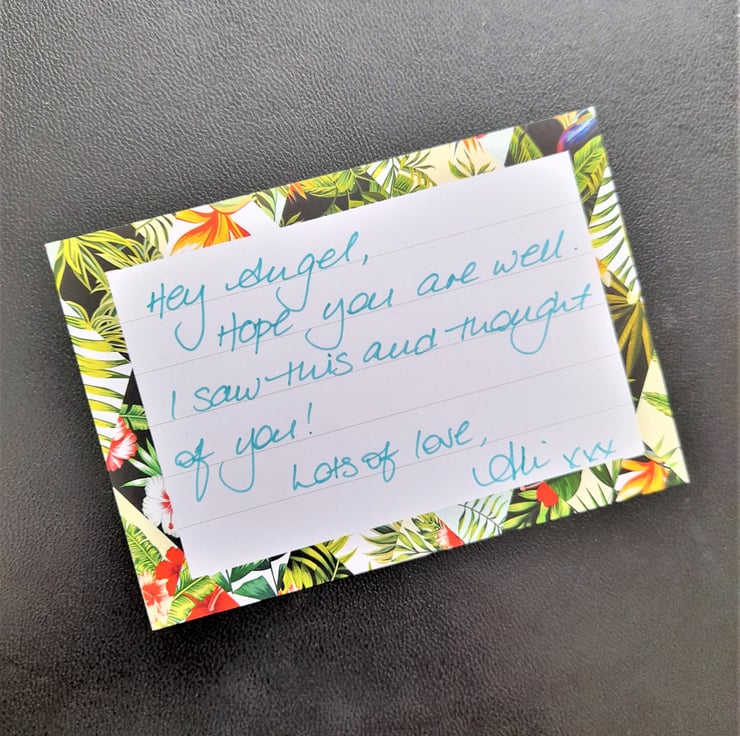 Hey Angel,
Hope you are well.
I saw this and thought
of you!
Lots of love,
Ali xxx